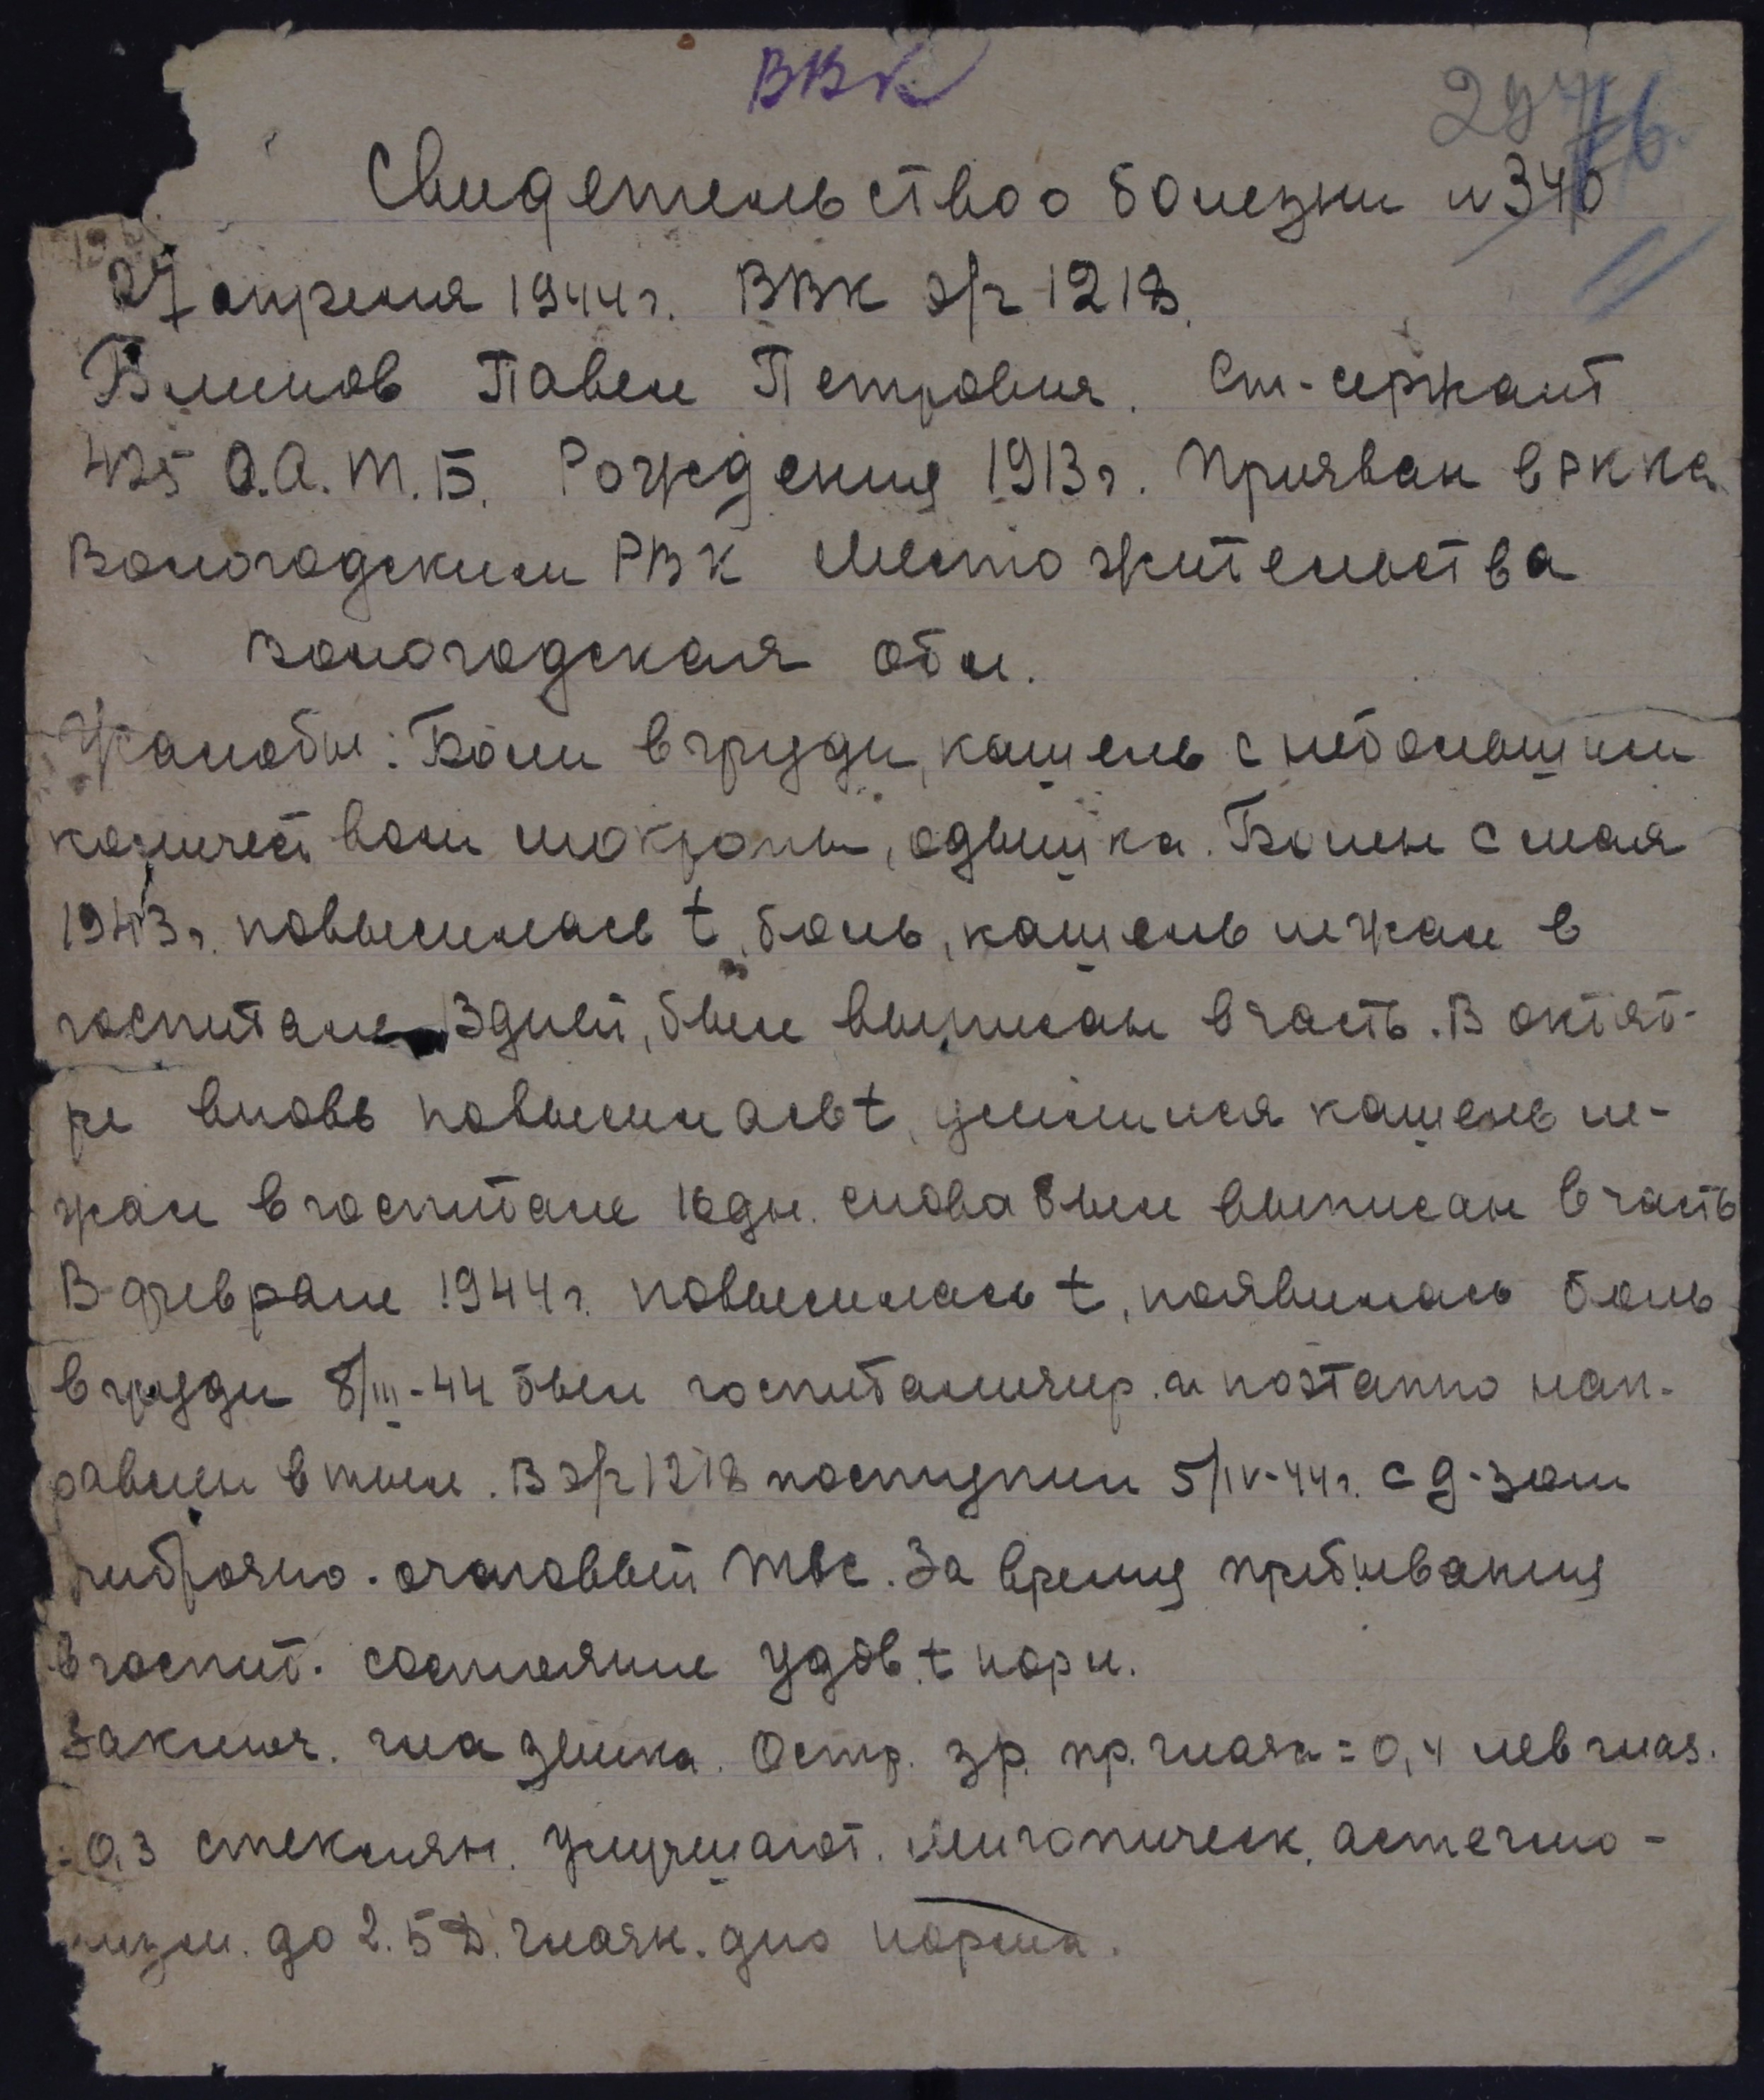 ВВК
Свидетельство о болезни N 340
27 апреля 1944 г. ВВК э/г 1218.
Блинов Павел Петрович. Ст-сержант
425 О.А.Т.Б. Рождения 1913 г. Призван в РККА
Вологодским РВК Место жительства
Вологодская обл.
Жалобы: Боли в груди, кашель с небольшим
количеством мокроты, одышка. Болен с мая
1943 г. повысилась t, боль, кашель лежал в
госпитале 13 дней, был выписан в часть. В октяб-
ре вновь повысилась t, усилился кашель ле-
жал в госпитале 16 дн. снова был выписан в часть
В феврале 1944 г. повысилась t, появилась боль
в груди 8/III-44 был госпитализир. и поэтапно нап-
равлен в тыл. В э/г 1218 поступил 5/IV-44 г. с д-зом
фиброзно-очаговый твс. За время пребывания
в госпит. состояние удов. t норм.
Заключ. глазника. Остр. зр. пр. глаза = 0,4 лев глаз.
- 0,3 стеклян. улучшают. Миопическ. астегмо-
тизм. до 2.5 D. Глазн. дно норма.